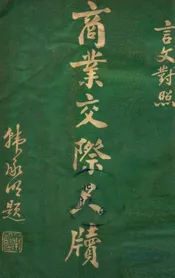 言文對照
商業交際尺牘